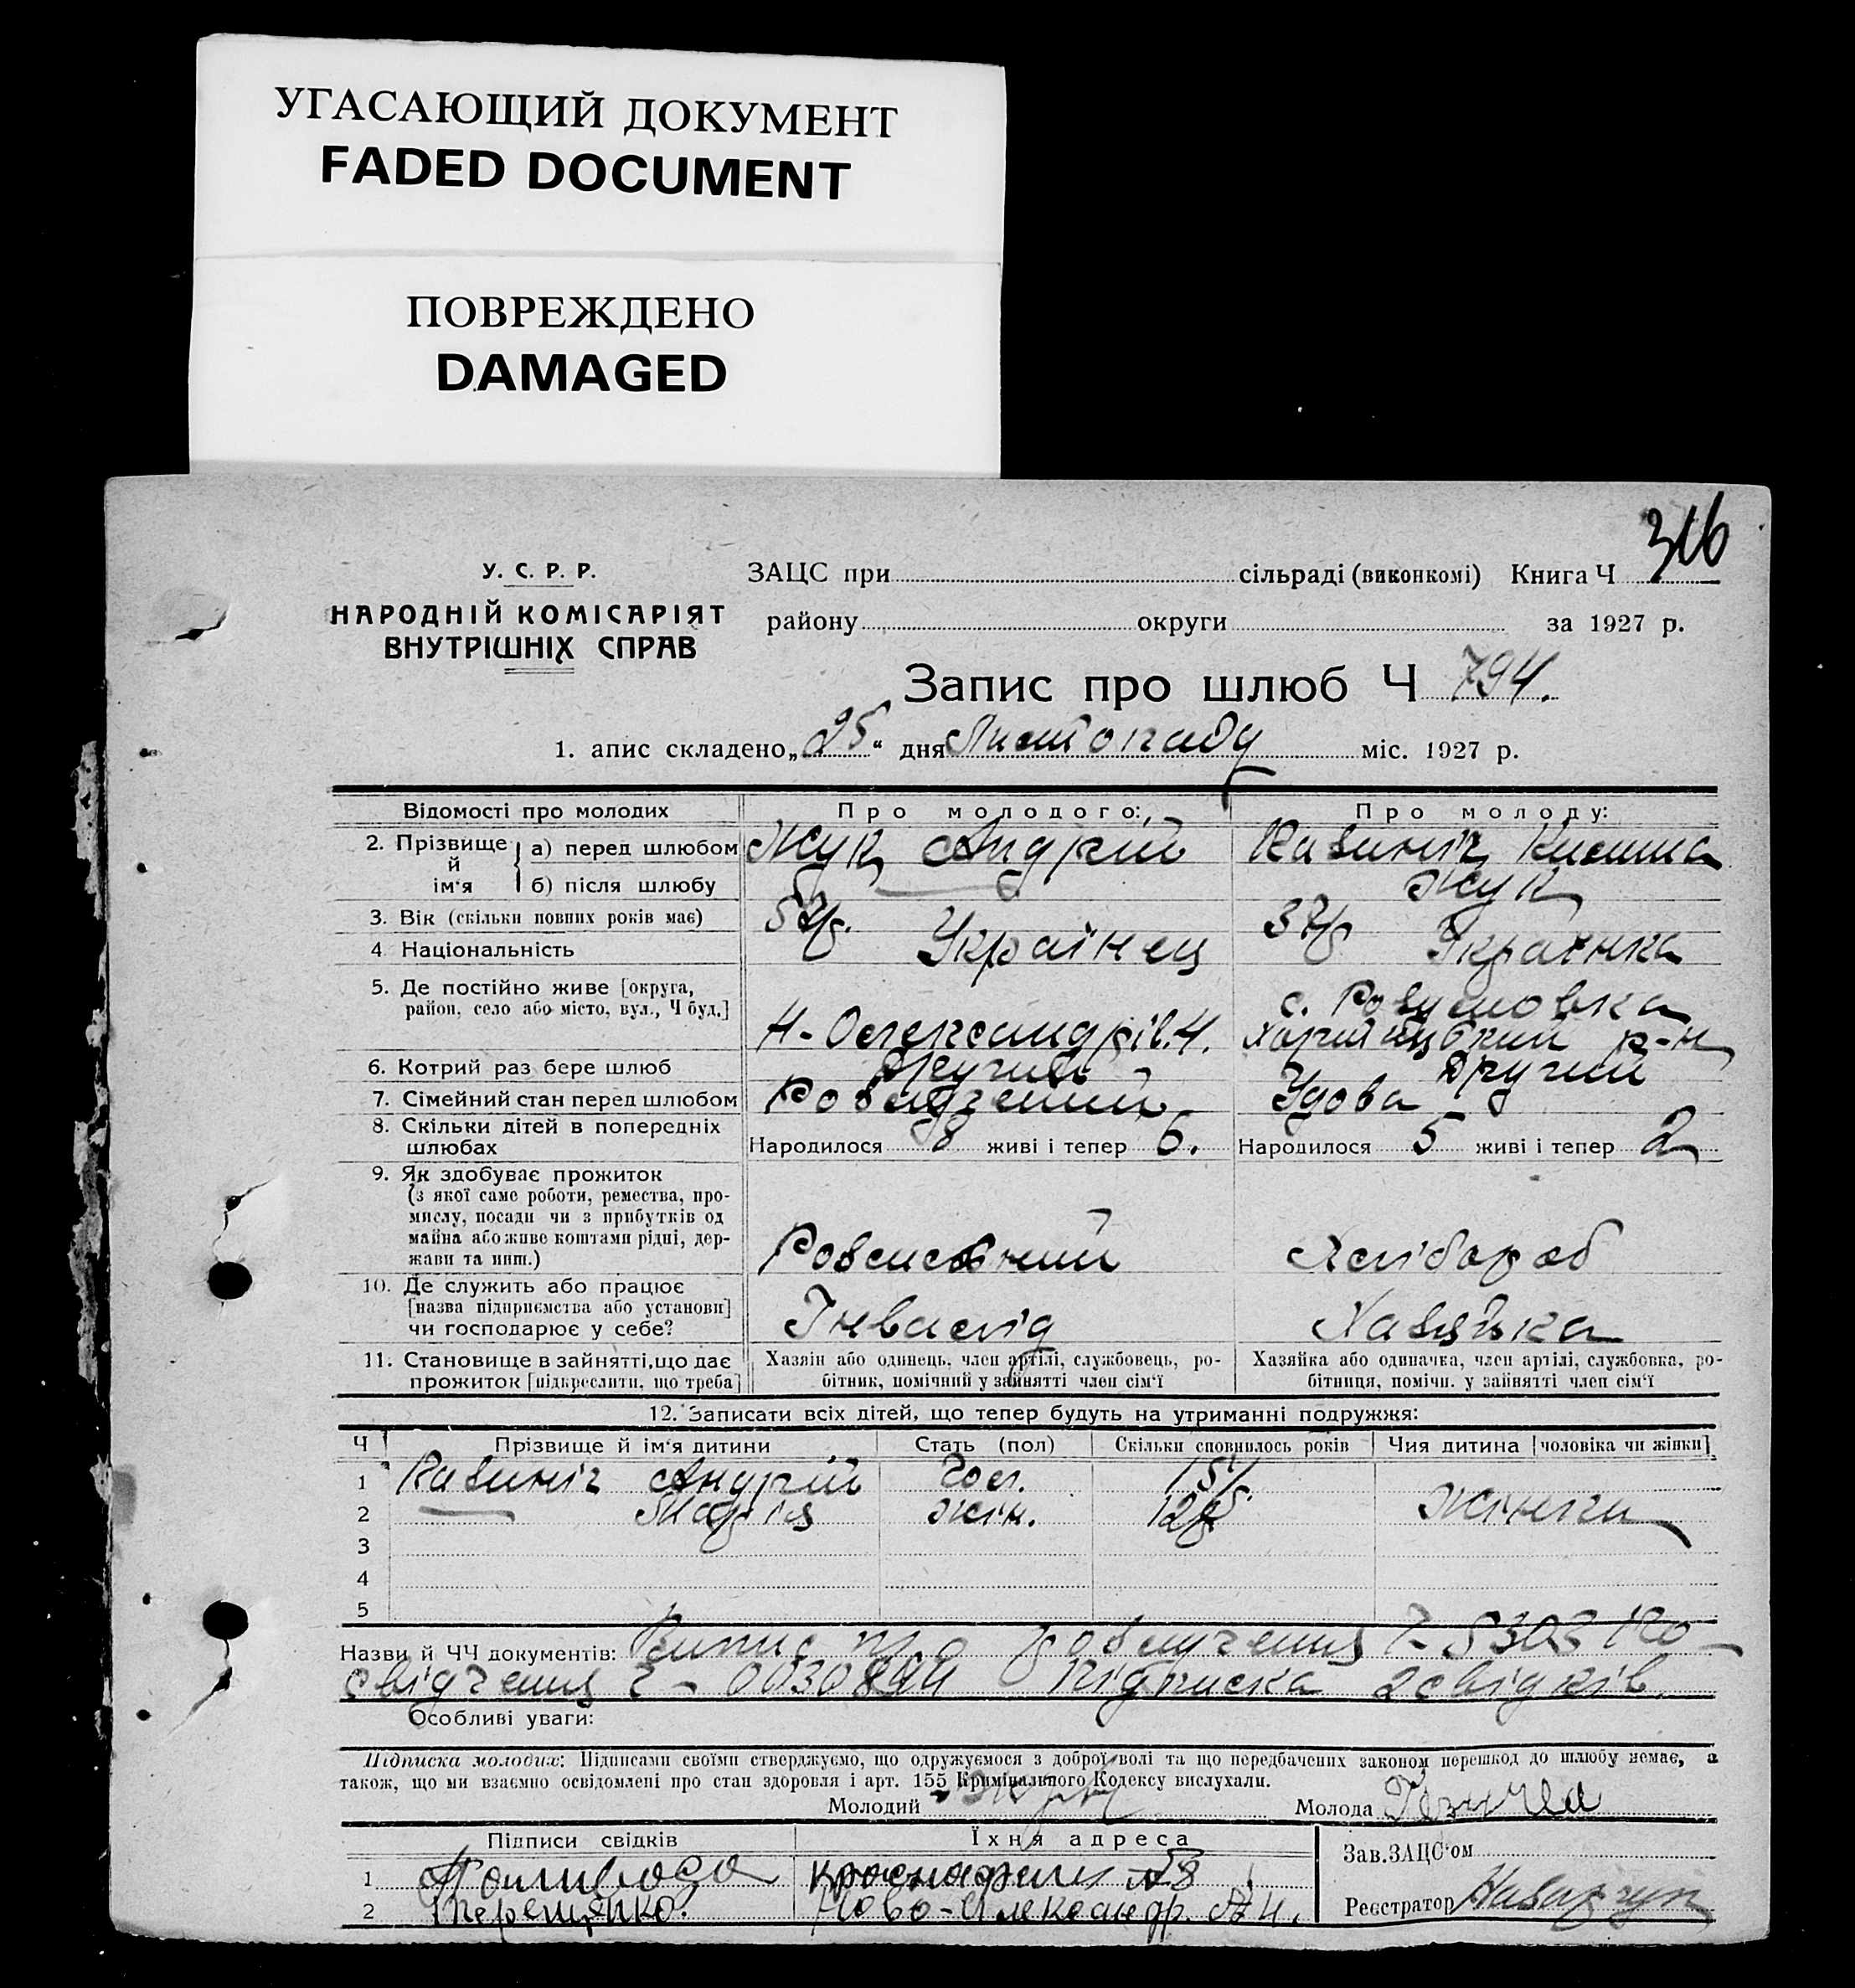 УГАСАЮЩИЙ ДОКУМЕНТ
FADED DOCUMENT
ПОВРЕЖДЕНО
DAMAGED
316
У. С. Р. Р.
НАРОДНІЙ КОМІСАРІЯТ
ВНУТРІШНІХ СПРАВ
ЗАЦС при сільраді (виконкомі) Книга Ч
району округи за 1927 р.
Запис про шлюб Ч 794.
1. апис складено „25“ дня Листопаду міс. 1927 р.
Відомості про молодих Про молодого: Про молоду:
2. Прізвище й ім'я { а) перед шлюбом Жук Андрій Кавиніч
б) після шлюбу Жук
3. Вік (скільки повних років має)
4 Національність Українец Українка
5. Де постійно живе [округа, район, село або місто, вул., Ч буд.] Н-Олександрів. 4. с. р-н
6. Котрий раз бере шлюб Другий Другий
7. Сімейний стан перед шлюбом Удова
8. Скільки дітей в попередніх шлюбах Народилося 8 живі і тепер 6. Народилося 5 живі і тепер 2
9. Як здобуває прожиток
(з якої саме роботи, ремества, про-
мислу, посади чи з прибутків од
майна або живе коштами рідні, дер-
жави та инш.) Хлібороб
10. Де служить або працює
[назва підприємства або установи]
чи господарює у себе? Інвалід Хазяйка
11. Становище в зайнятті, що дає прожиток [підкреслити, що треба]
Хазяін або одинець, член артілі, службовець, ро-
бітник, помічний у зайнятті член сім'ї
Хазяйка або одиначка, член артілі, службовка, ро-
бітниця, помічн. у зайнятті член сім'ї
12. Записати всіх дітей, що тепер будуть на утриманні подружжя:
Ч Прізвище й ім'я дитини Стать (пол) Скільки сповнилось років Чия дитина [чоловіка чи жінки]
1 Кавиніч Андрій Чол. 15
2 Марія жін. 12 Жінки
3
4
5
Назви й ЧЧ документів: Випис про розлучення Ч- 5303 По-
свідчення ч - Підписка 2 свідків.
Особливі уваги:
Підписка молодих: Підписами своїми стверджуємо, що одружуємося з доброї волі та що передбачених законом перешкод до шлюбу немає, а
також, що ми взаємно освідомлені про стан здоровля і арт. 155 Кримінального Кодексу вислухали.
Молодий Жук Молода
Підписи свідків Їхня адреса
1 №8
2 Терещенко. Ново-Александр. №4.
Зав.ЗАЦС'ом
Реєстратор